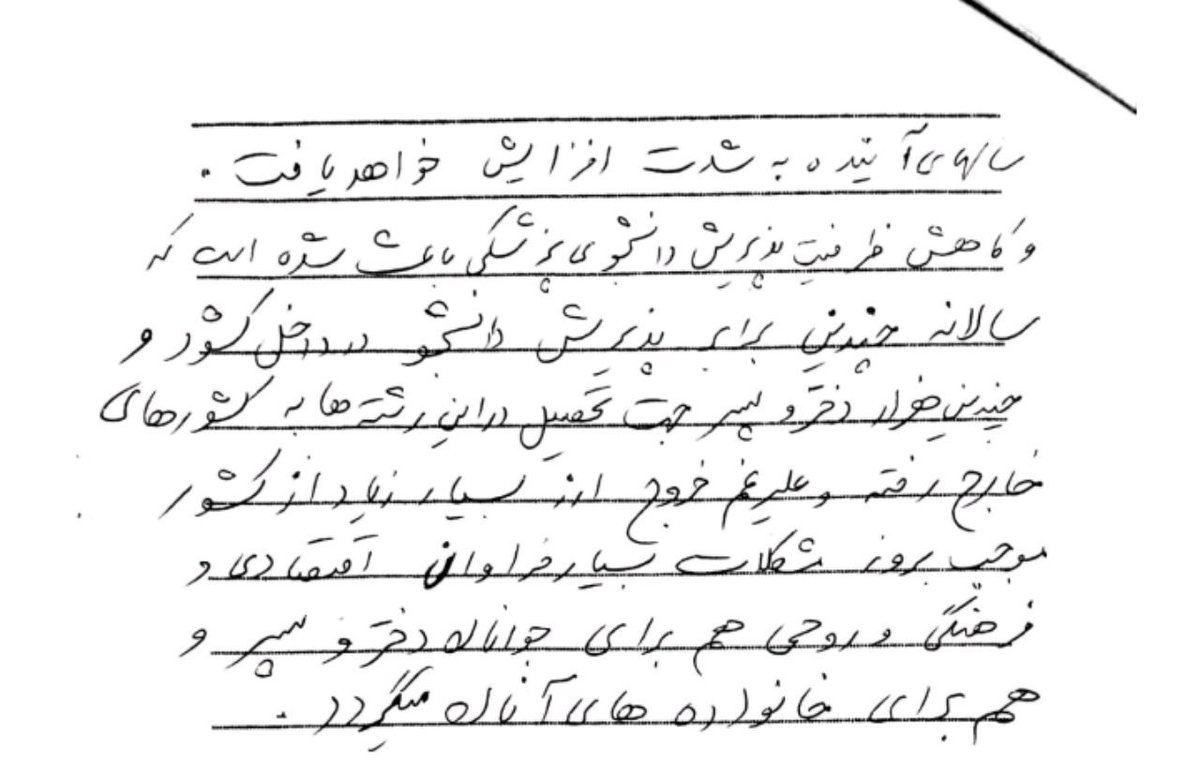 سالهای آینده به شدت افزایش خواهد یافت .
و کاهش ظرفیت پذیرش دانشجوی پزشکی باعث شده است که
سالانه چندین برای پذیرش دانشجو در داخل کشور و
چندین هزار دختر و پسر جهت تحصیل در این رشته ها به کشورهای
خارج رفته و علیرغم خروج ارز بسیار زیاد از کشور
موجب بروز مشکلات بسیار فراوان اقتصادی و
فرهنگی و روحی هم برای جوانان دختر و پسر و
هم برای خانواده های آنان میگردد .